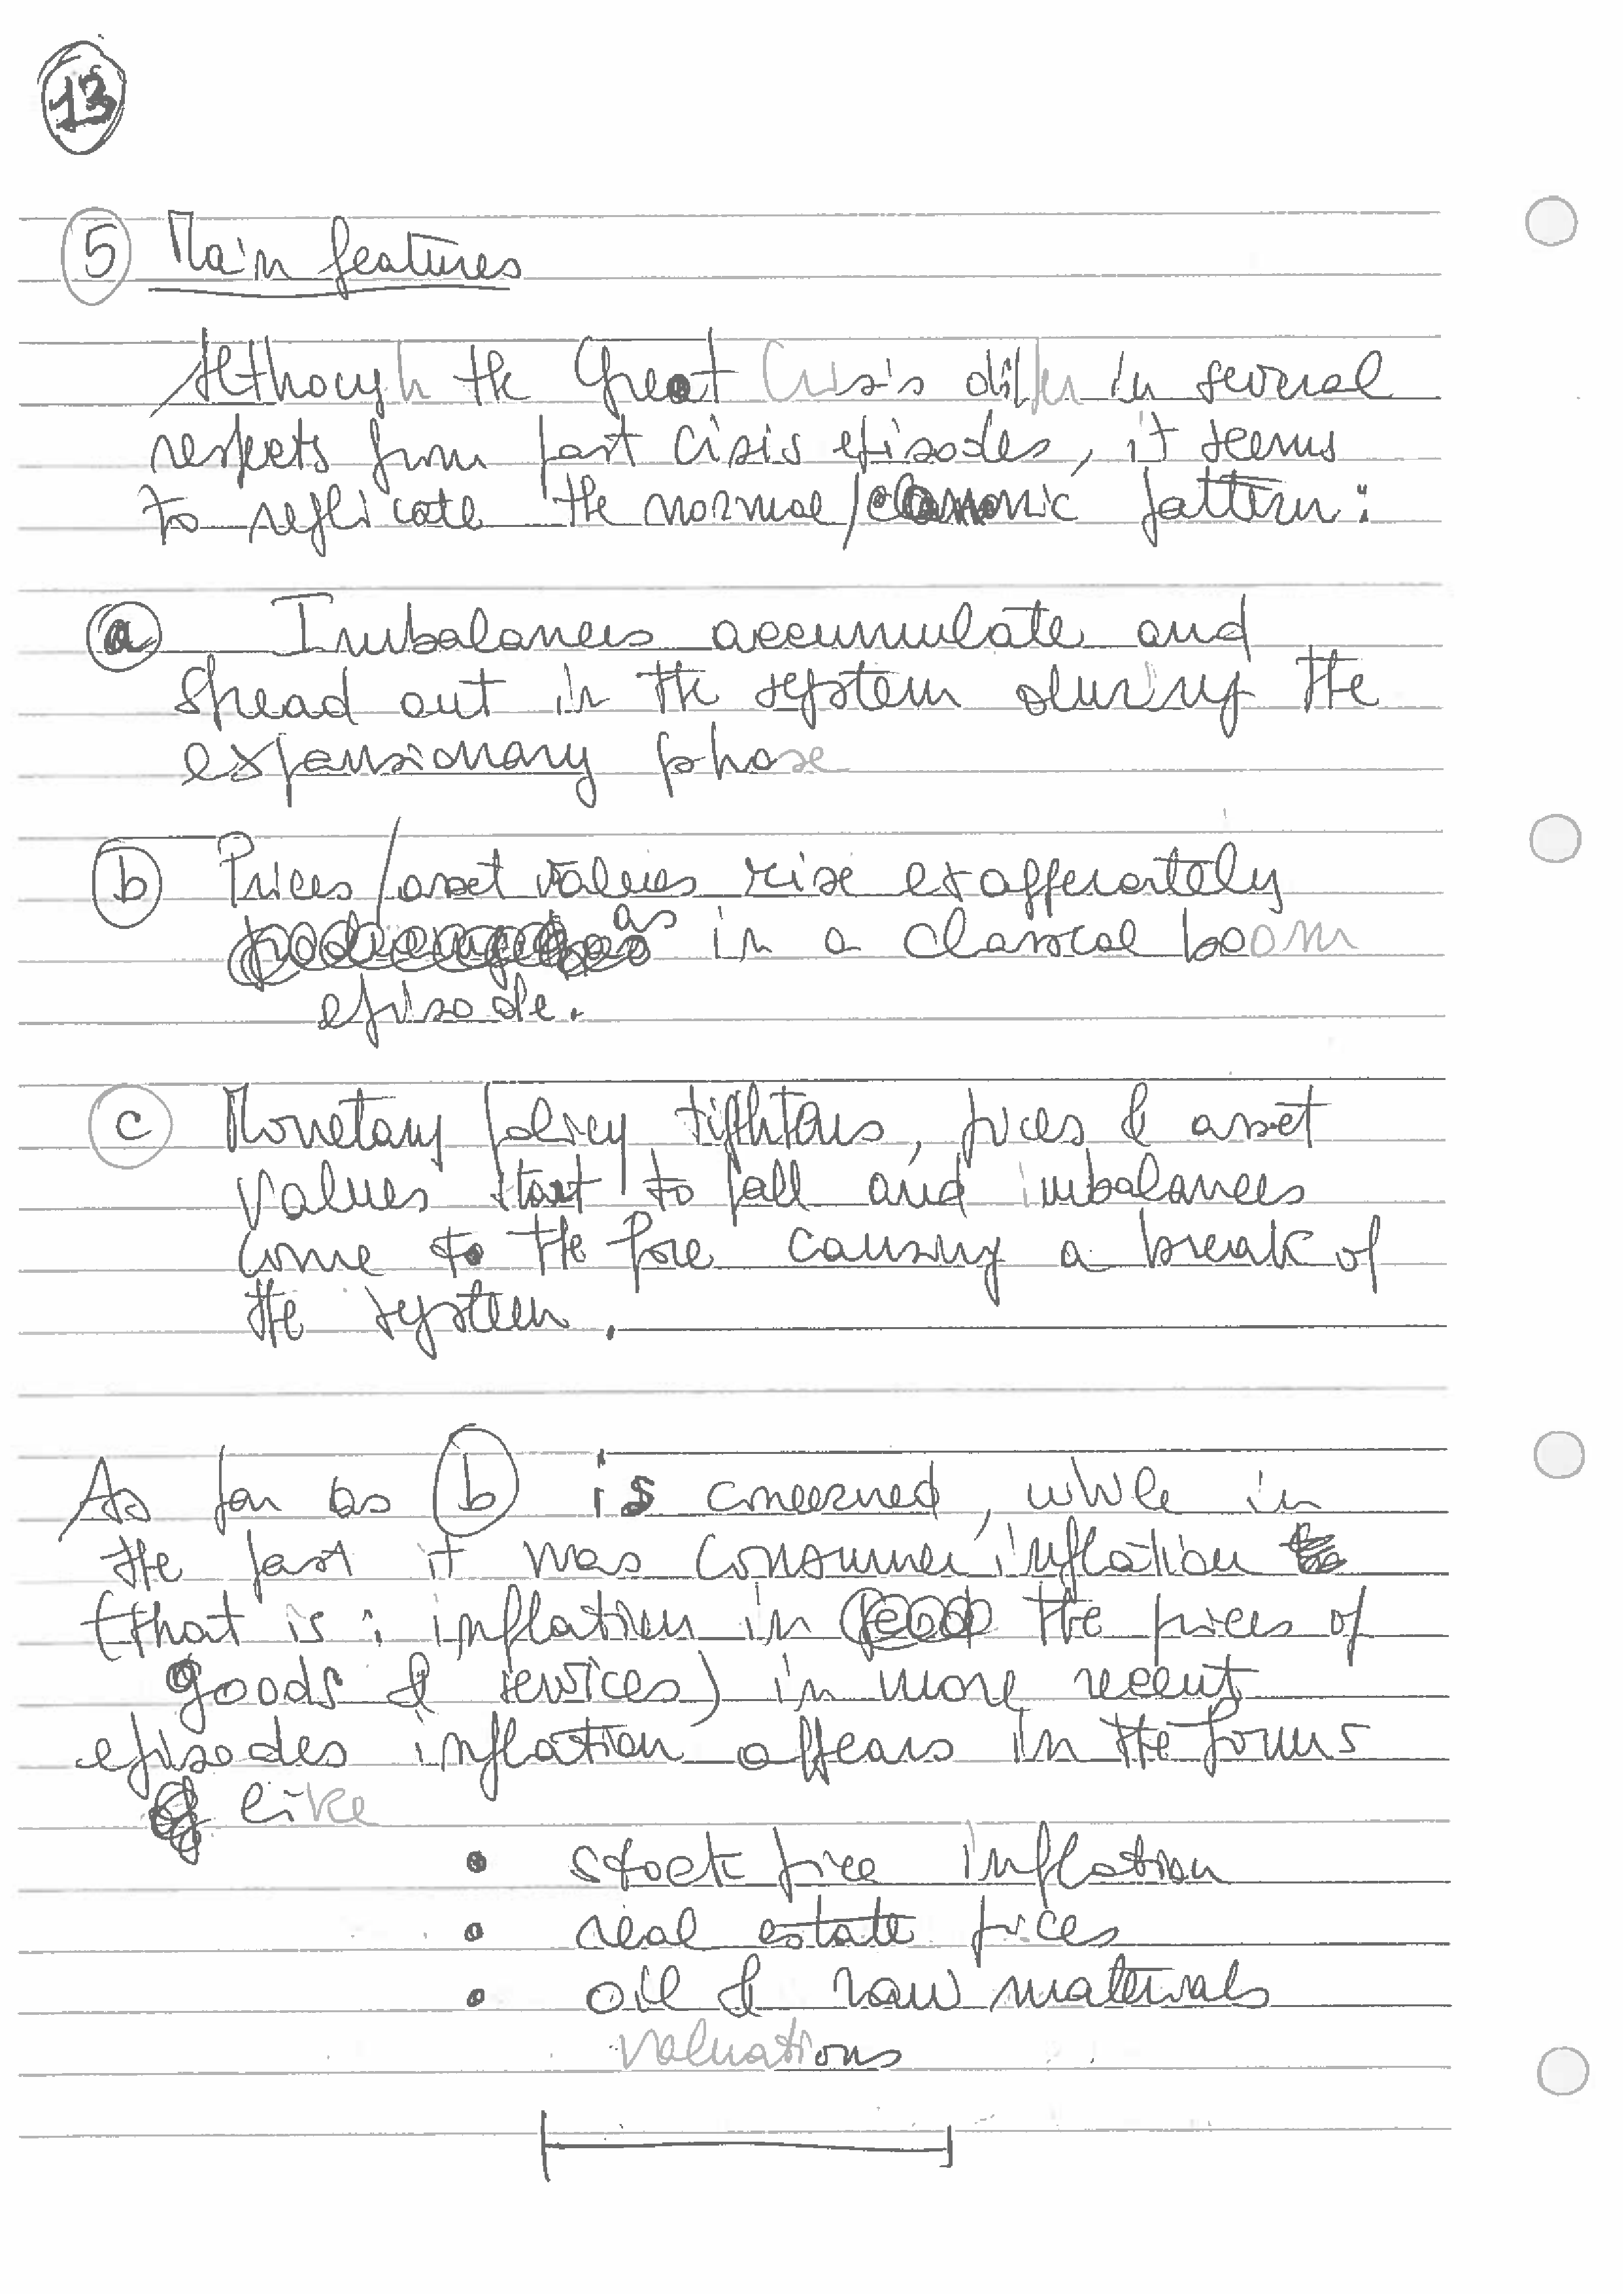 13
5 Main features
Although the Great Crisis differ in several
respects from past crisis episodes, it seems
to replicate the normal/canonic pattern:
a Imbalances accumulate and
spread out in the system during the
expansionary phase
b Prices/asset values rise exaggerately
as in a classical boom
episode.
c Monetary policy tightens, prices & asset
values start to fall and imbalances
come to the fore causing a break of
the system.
As far as b is concerned, while in
the past it was consumer inflation
(that is: inflation in the prices of
goods & services) in more recent
episodes inflation appears in the forms
like
• stock price inflation
• real estate prices
• oil & raw materials
valuations